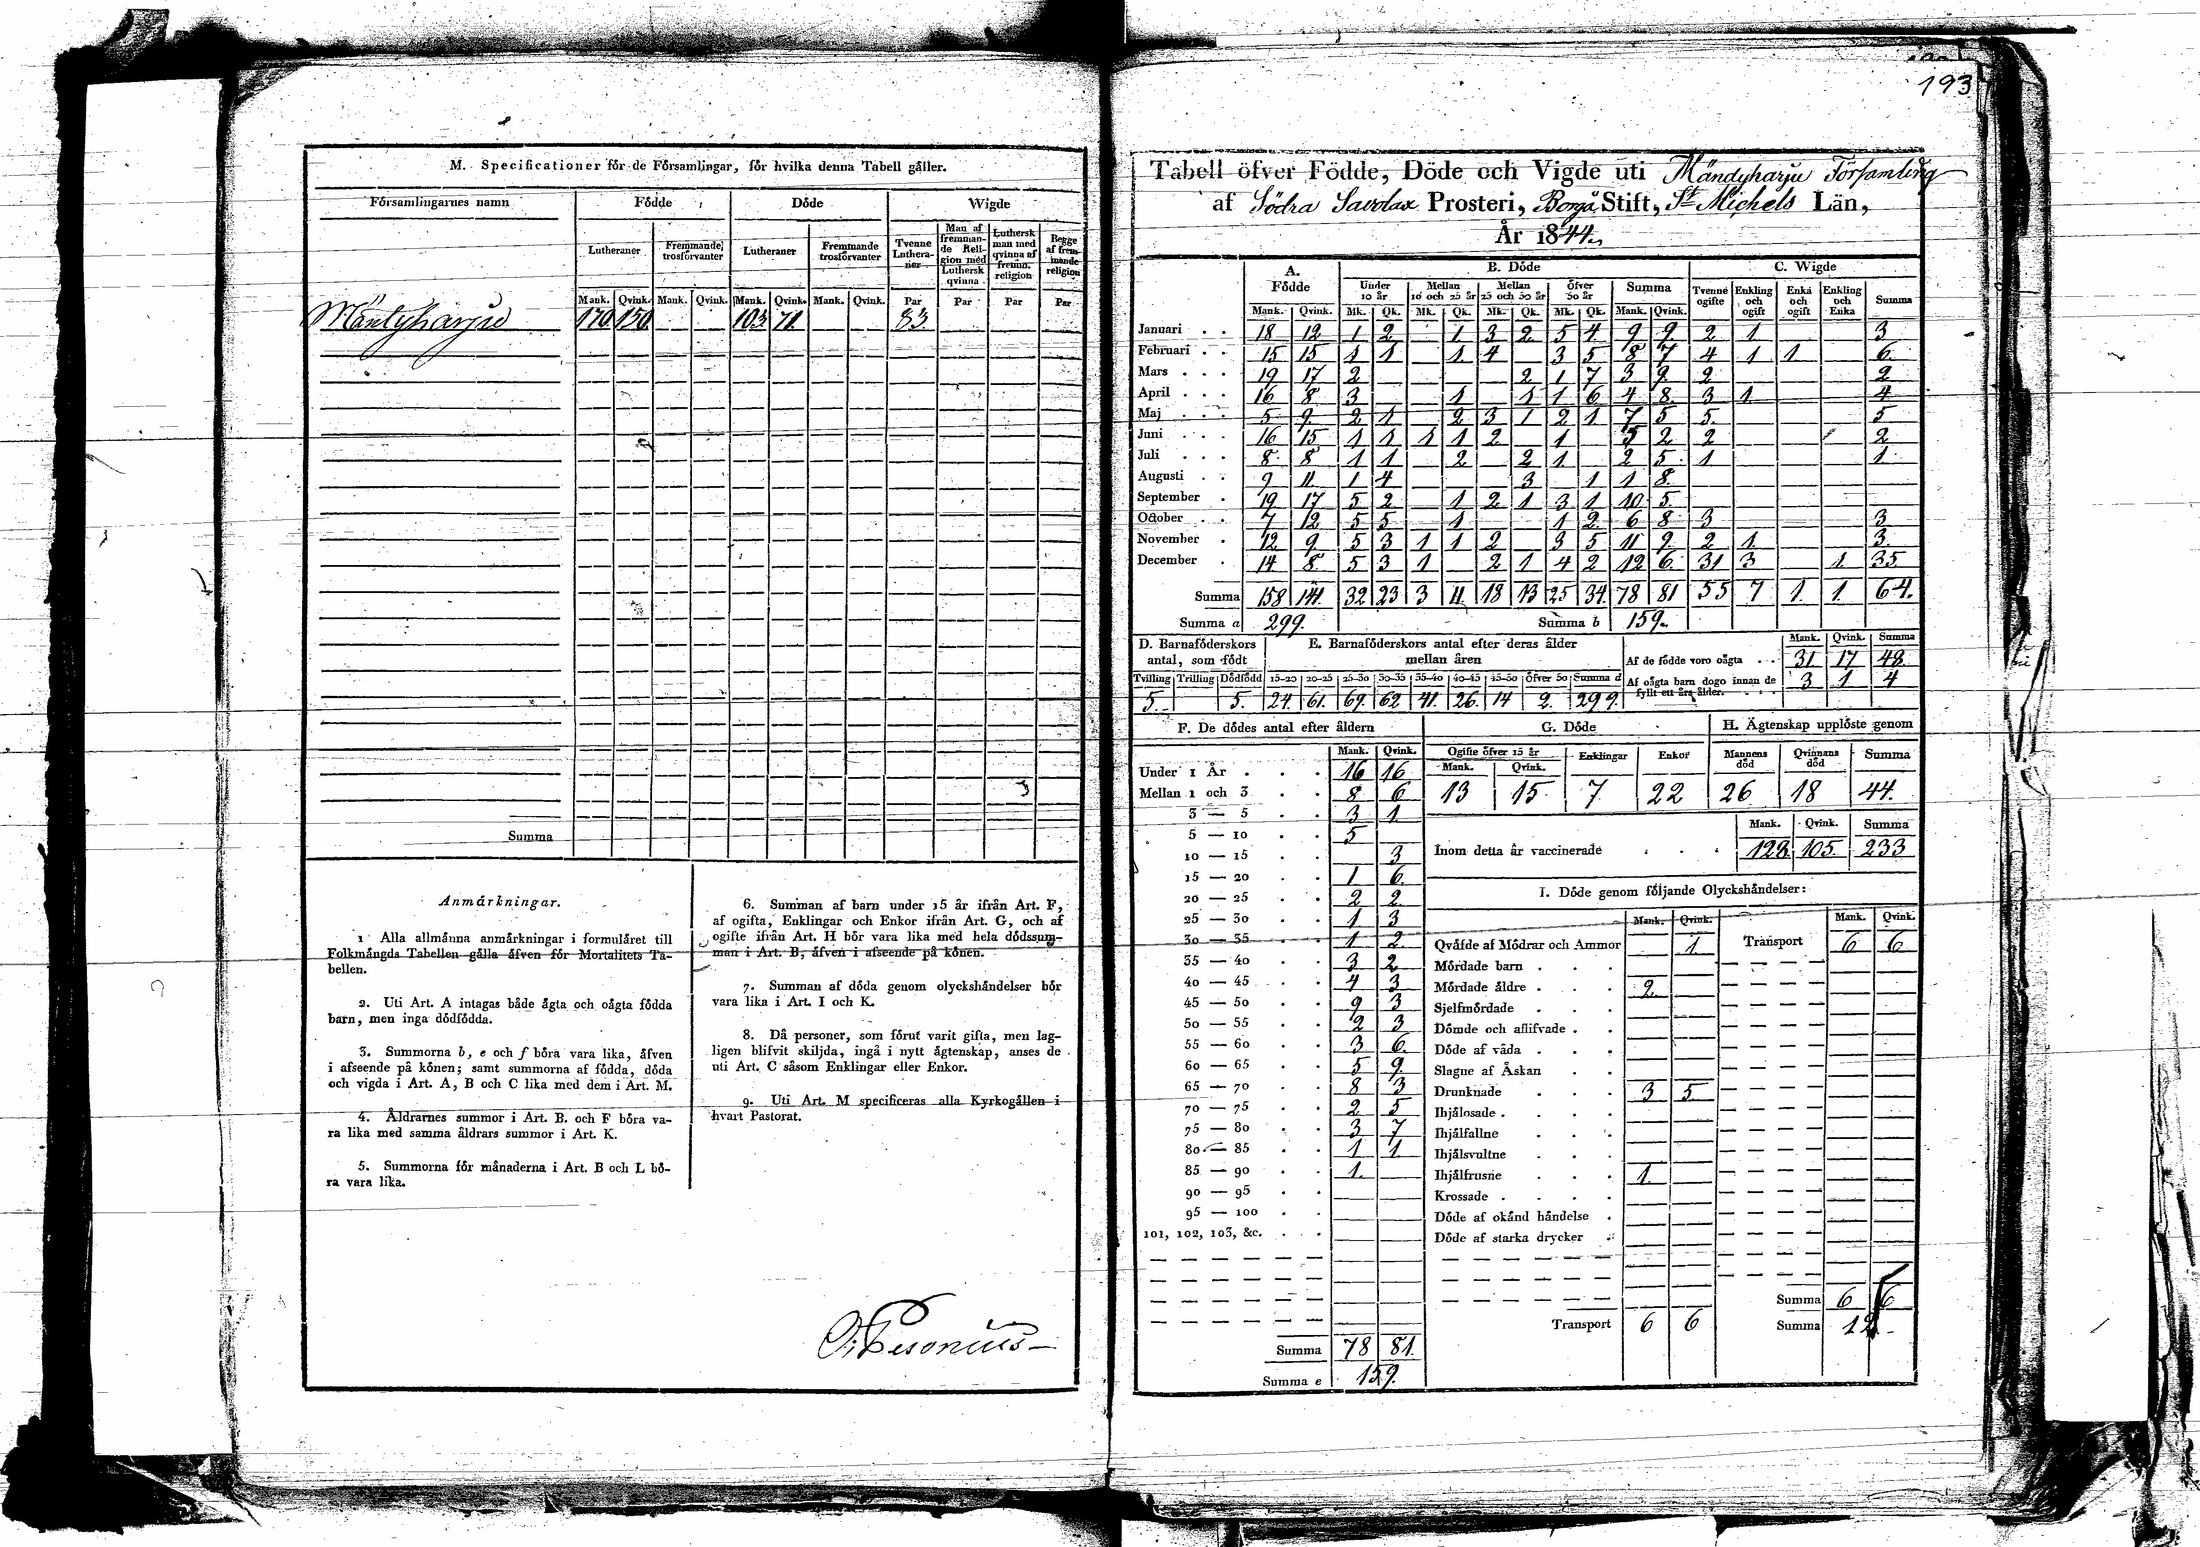 M. Specificationer för de Församlingar, för hvilka denna Tabell gäller.
Församlingarnes namn Födde Döde Wigde
Lutheraner Fremmande trosförvanter Lutheraner Fremmande trosförvanter Tvenne Lutheraner Man af fremmande Religion med Luthersk qvinna Luthersk man med qvinna af fremm. religion Begge af fremmande religion
Mank. Qvink. Mank. Qvink. Mank. Qvink. Mank. Qvink. Par Par Par Par
Mäntyharju 170 150 103 71 83
Summa
Anmärkningar.
1 Alla allmänna anmärkningar i formuläret till
Folkmängds Tabellen gälla äfven för Mortalitets Ta-
bellen.
2. Uti Art. A intagas både ägta och oägta födda
barn, men inga dödfödda.
3. Summorna b, e och f böra vara lika, äfven
i afseende på könen; samt summorna af födda, döda
och vigda i Art. A, B och C lika med dem i Art. M.
4. Åldrarnes summor i Art. B. och F böra va-
ra lika med samma åldrars summor i Art. K.
5. Summorna för månaderna i Art. B och L bö-
ra vara lika.
6. Summan af barn under 15 år ifrån Art. F,
af ogifta, Enklingar och Enkor ifrån Art. G, och af
ogifte ifrån Art. H bör vara lika med hela dödssum-
man i Art. B, äfven i afseende på könen.
7. Summan af döda genom olyckshändelser bör
vara lika i Art. I och K.
8. Då personer, som förut varit gifta, men lag-
ligen blifvit skiljda, ingå i nytt ägtenskap, anses de
uti Art. C såsom Enklingar eller Enkor.
9. Uti Art. M specificeras alla Kyrkogällen i
hvart Pastorat.
193
Tabell öfver Födde, Döde och Vigde uti Mändyharju Församling
af Södra Savolax Prosteri, Borgå Stift, St Michels Län,
År 1844.
A. Födde B. Döde C. Wigde
Under 10 år Mellan 10 och 25 år Mellan 25 och 50 år Öfver 50 år Summa Tvenne ogifte Enkling och ogift Enka och ogift Enkling och Enka Summa
Mank. Qvink. Mk. Qk. Mk. Qk. Mk. Qk. Mk. Qk. Mank. Qvink.
Januari 18 12 1 2 1 3 2 5 4 9 9 2 1 3
Februari 15 15 1 1 1 4 3 5 8 7 4 1 1 6
Mars 19 17 2 2 1 7 3 9 2 2
April 16 8 3 1 1 1 6 4 8 3 1 4
Maj 5 9 2 1 2 3 1 2 1 7 5 5 5
Juni 16 15 1 1 1 1 2 1 5 2 2 2
Juli 8 8 1 1 2 2 1 2 5 1 1
Augusti 9 11 1 4 3 1 1 8
September 19 17 5 2 1 2 1 3 1 10 5
October 7 12 5 5 1 1 2 6 8 3 3
November 12 9 5 3 1 1 2 3 5 11 9 2 1 3
December 14 8 5 3 1 2 1 4 2 12 6 31 3 1 35
Summa 158 141 32 23 3 11 18 13 25 34 78 81 55 7 1 1 64.
Summa a 299. Summa b 159.
D. Barnaföderskors antal, som födt E. Barnaföderskors antal efter deras ålder mellan åren
Tvilling Trilling Dödfödd 15–20 20–25 25–30 30–35 35–40 40–45 45–50 Öfver 50 Summa d
5. 5. 24. 61. 69. 62 41. 26. 14 2. 299.
Mank. Qvink. Summa
Af de födde voro oägta 31 17 48
Af oägta barn dogo innan de fyllt ett års ålder. 3 1 4
F. De dödes antal efter åldern
Mank. Qvink.
Under 1 År 16 16
Mellan 1 och 3 8 6
3 — 5 3 1
5 — 10 5
10 — 15 3
15 — 20 1 6
20 — 25 2 2
25 — 30 1 3
30 — 35 1 2
35 — 40 3 2
40 — 45 4 3
45 — 50 9 3
50 — 55 2 3
55 — 60 3 6
60 — 65 5 9
65 — 70 8 3
70 — 75 2 5
75 — 80 3 7
80 — 85 1 1
85 — 90 1.
90 — 95
95 — 100
101, 102, 103, &c.
Summa 78 81.
Summa e 159.
G. Döde H. Ägtenskap upplöste genom
Ogifte öfver 15 år Enklingar Enkor Mannens död Qvinnans död Summa
Mank. Qvink.
13 15 7 22 26 18 44.
Mank. Qvink. Summa
Inom detta år vaccinerade 128 105. 233
I. Döde genom följande Olyckshändelser:
Mank. Qvink. Mank. Qvink.
Qväfde af Mödrar och Ammor 1. Transport 6 6
Mördade barn
Mördade äldre 2
Sjelfmördade
Dömde och aflifvade
Döde af våda
Slagne af Åskan
Drunknade 3 5
Ihjälosade
Ihjälfallne
Ihjälsvultne
Ihjälfrusne 1.
Krossade
Döde af okänd händelse
Döde af starka drycker
Summa 6 6
Transport 6 6 Summa 12